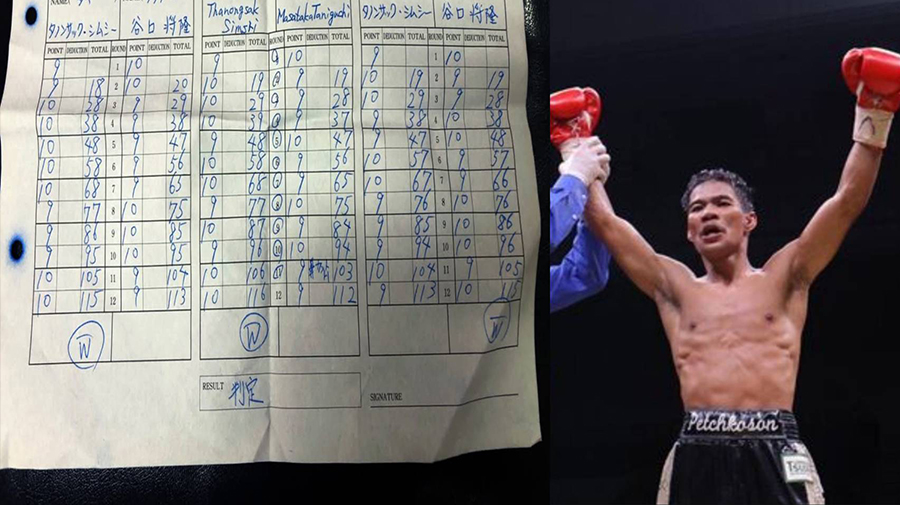 NAME:
タノンサック・シムシー 谷口 将隆 Thanongsak Simshi Masataka Taniguchi タノンサック・シムシー 谷口 将隆
POINT DEDUCTION TOTAL ROUND POINT DEDUCTION TOTAL POINT DEDUCTION TOTAL ROUND POINT DEDUCTION TOTAL POINT DEDUCTION TOTAL ROUND POINT DEDUCTION TOTAL
9 1 10 9 10 9 1 10
9 18 2 10 20 10 19 9 19 10 19 2 9 19
10 28 3 9 29 10 29 9 28 10 29 3 9 28
10 38 4 9 38 10 39 9 37 9 38 4 10 38
10 48 5 9 47 9 48 5 10 47 9 47 5 10 48
10 58 6 9 56 10 58 9 56 10 57 6 9 57
10 68 7 9 65 10 68 9 65 10 67 7 9 66
9 77 8 10 75 9 77 10 75 9 76 8 10 76
9 86 9 10 85 10 87 9 84 9 85 9 10 86
9 95 10 10 95 9 96 10 10 94 9 94 10 10 96
10 105 11 9 104 10 106 9 103 10 104 11 9 105
10 115 12 9 113 10 116 12 9 112 9 113 12 10 115
W W W
RESULT 判定
SIGNATURE
Petchkoson